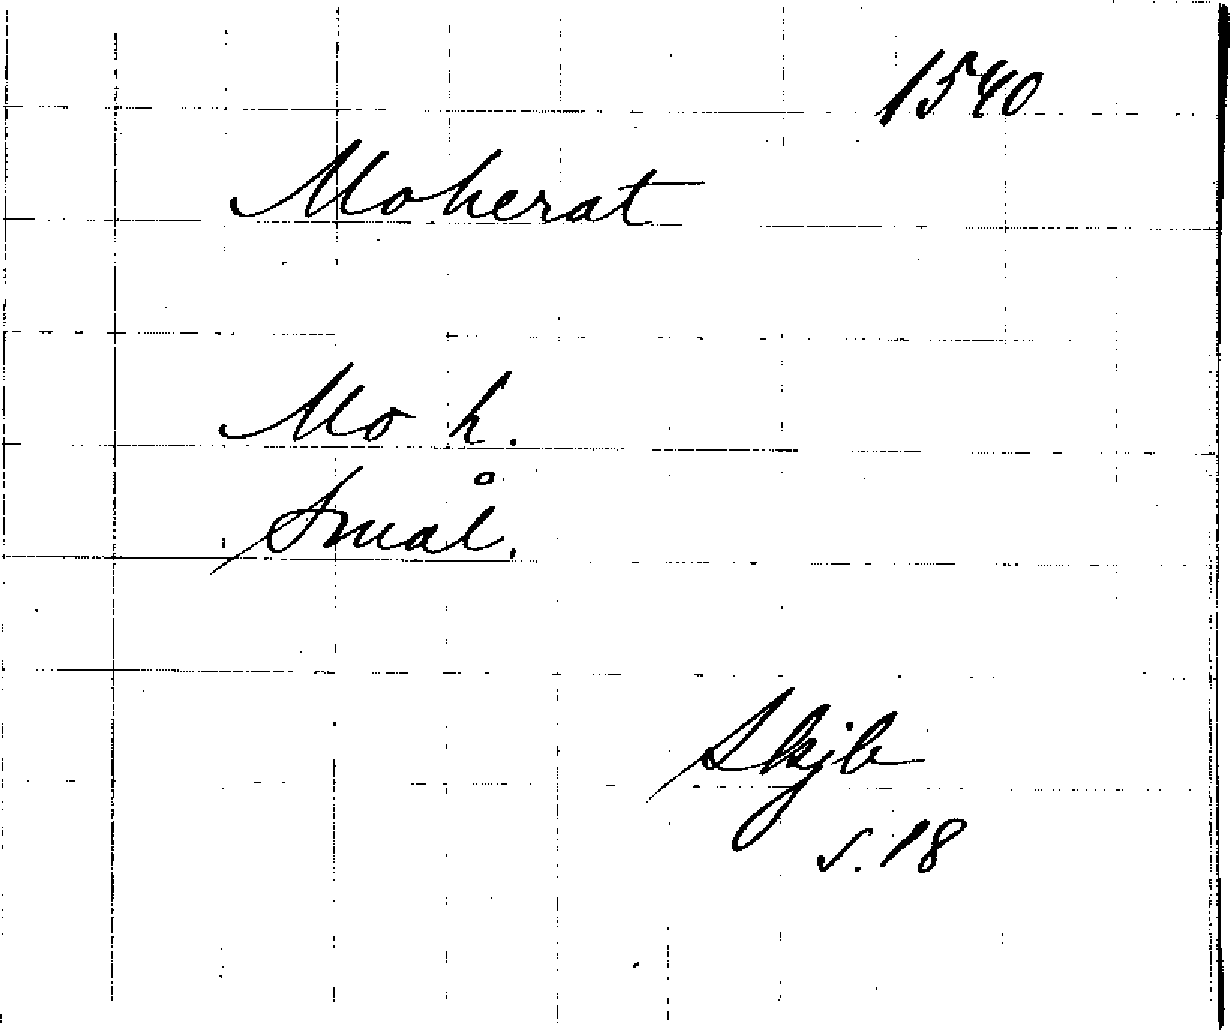 1540
Moherat
Mo h.
Smål.
Skjb
s. 18